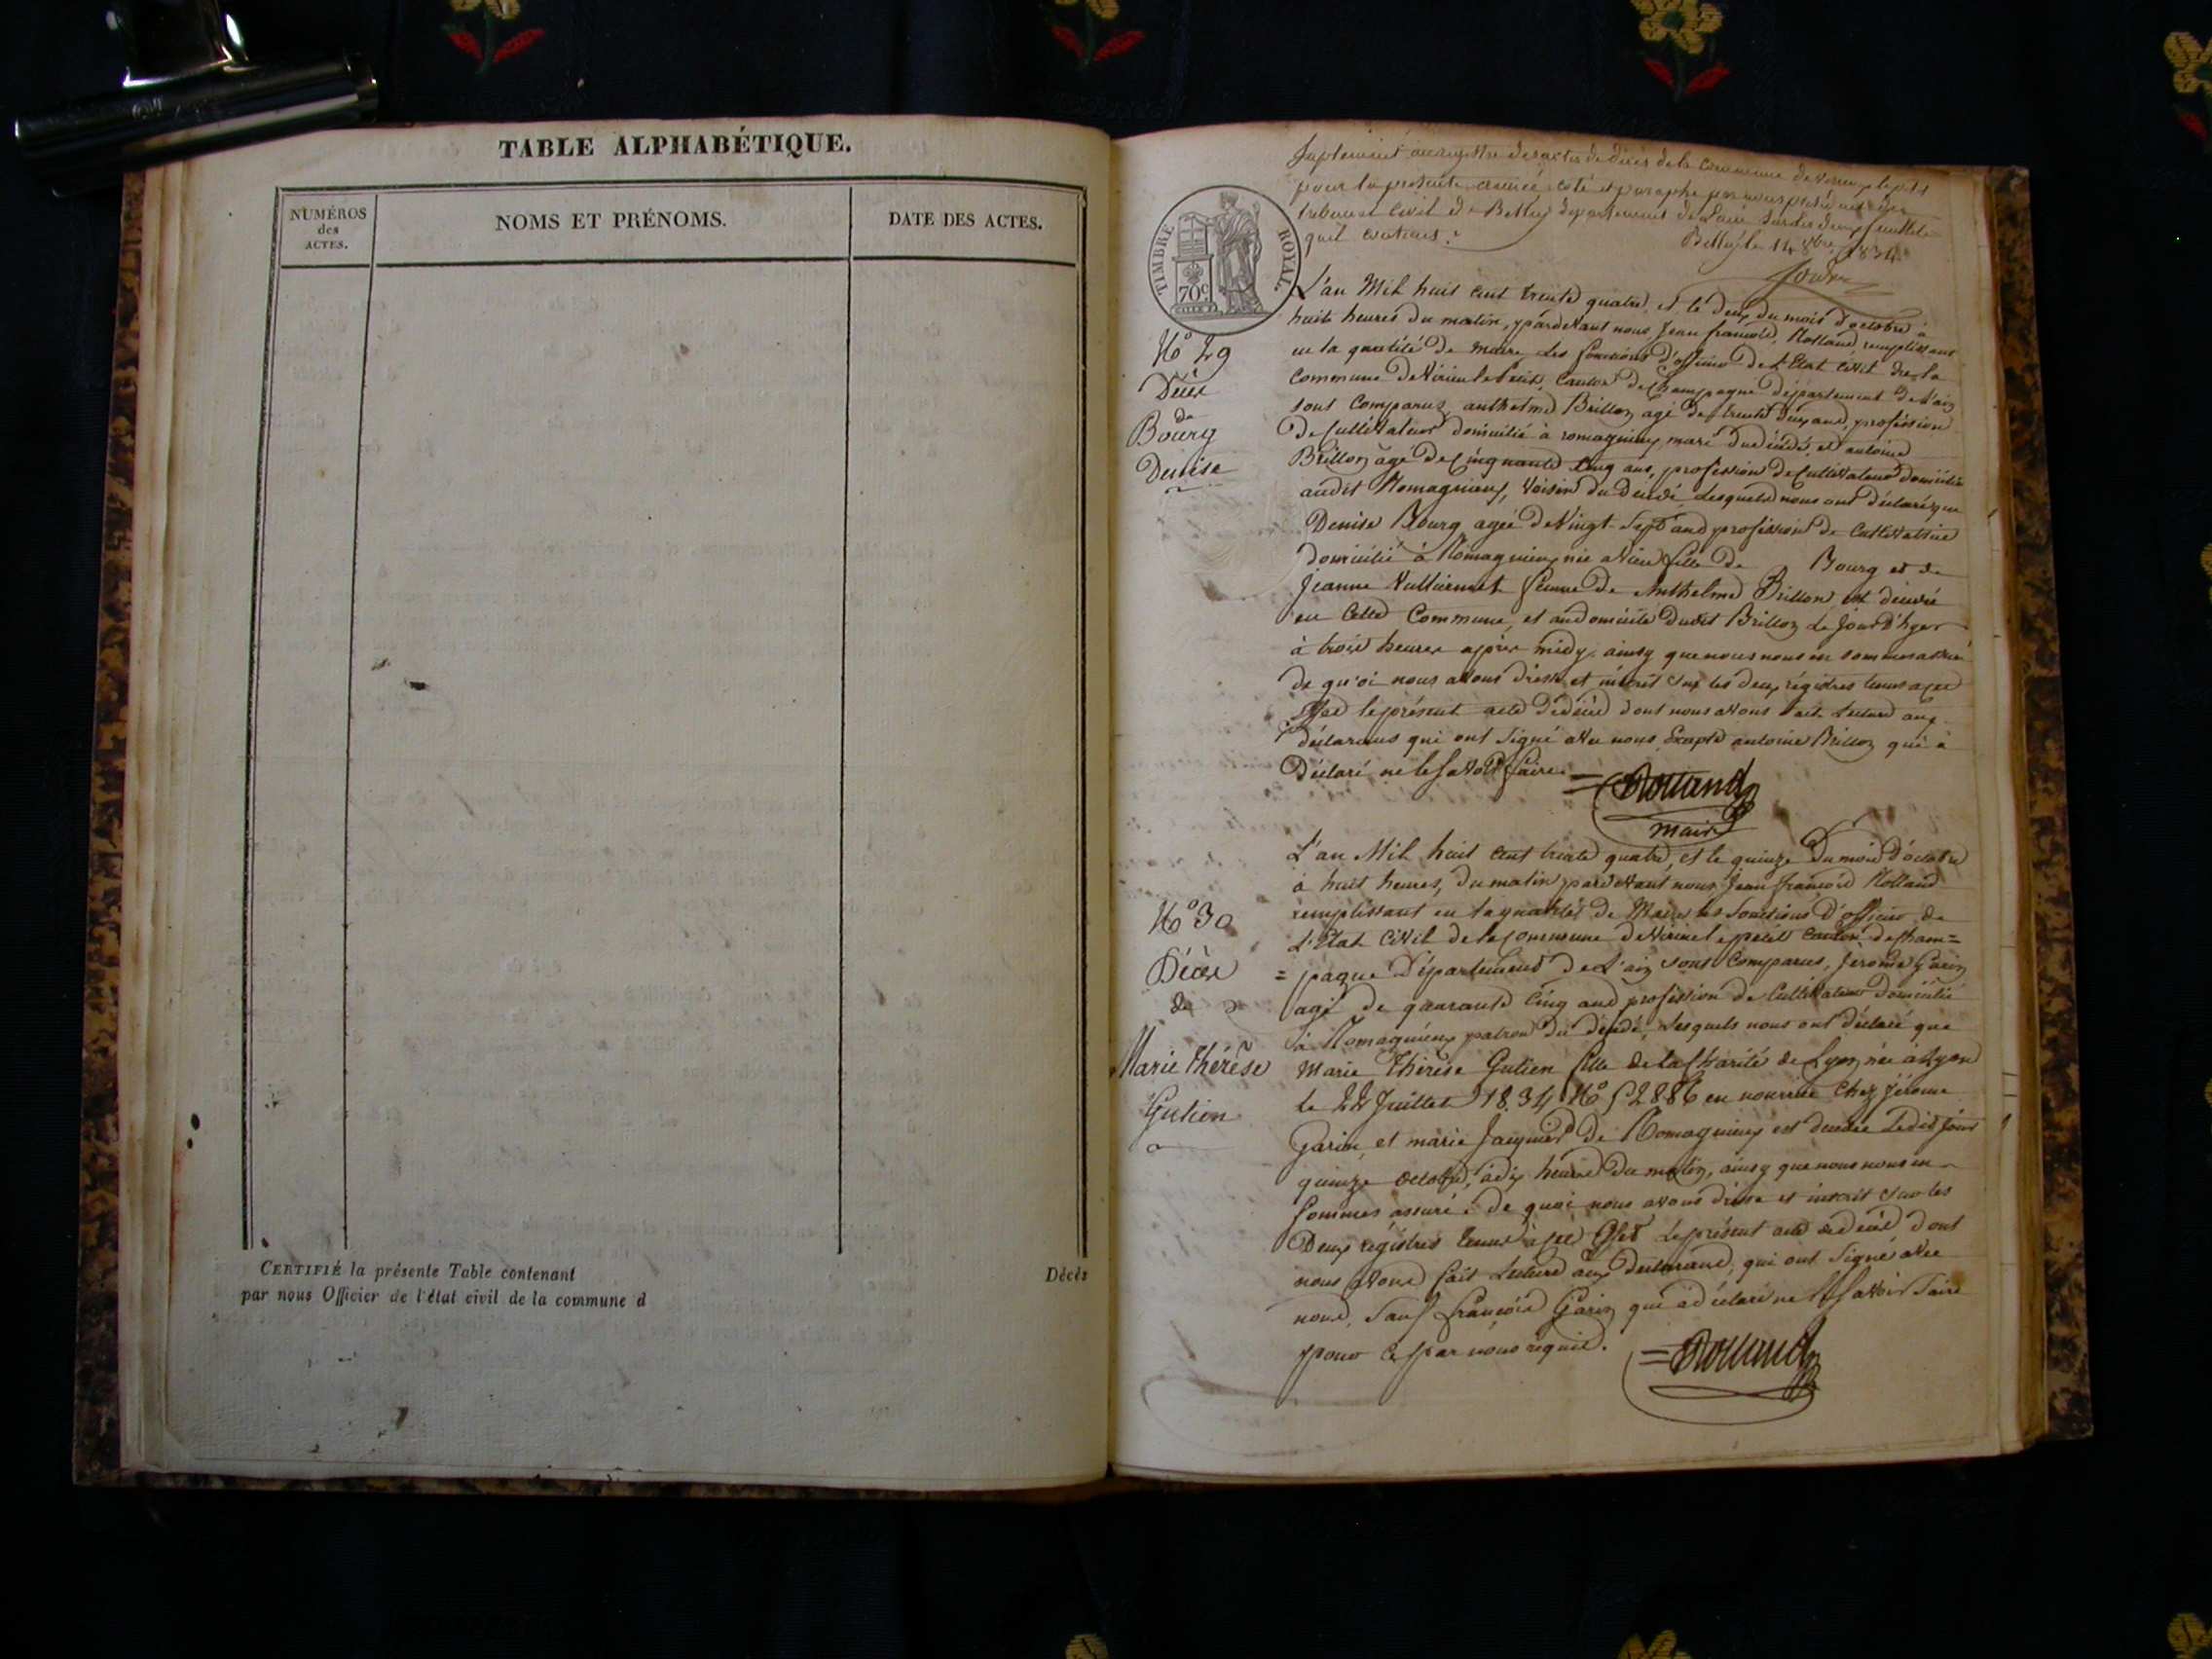 TABLE ALPHABÉTIQUE.
NUMÉROS
des
ACTES.
NOMS ET PRÉNOMS.
DATE DES ACTES.
CERTIFIÉ la présente Table contenant
Décès
par nous Officier de l'état civil de la commune d
Suplement au registre des actes de décès de la commune de virieu le petit
pour la presente année coté et paraphé par nous président du
tribunal civil de Belley département de l'ain
quil contient.
Belley le 14 8bre 1834
TIMBRE ROYAL.
70c
L'an Mil huit cent trente quatre, et le deux du mois d'octobre à
huit heures du matin, pardevant nous Jean françois Rolland remplissant
en la qualité de maire les fonctions d'officier de L'Etat Civil de la
Commune de Virieu le Petit, Canton de Champagne département de L'ain
sont Comparus, anthelme Brillon agé de trente deux ans, profession
De Cultivateur domicilié à romagnieux mari du décédé, et antoine
Brillon âgé de Cinquante Cinq ans, profession de Cultivateur domicilié
audit Romagnieux, Voisin du Décédé Lesquels nous ont déclaré que
Denise Bourg agée de Vingt-Sept ans profession de Cultivatrice
domicilié à Romagnieux née a Vieu fille de Bourg et de
Jeanne Vulliermet femme de Anthelme Brillon, est décédée
en Cette Commune, et au domicile dudit Brillon Le Jour d'hyer
à trois heures après midy, ainsy que nous nous en sommes assuré
de qu'oi nous avons dressé et inscrit sur les deux régistres tenus a cet
effet le présent acte de décès dont nous avons fait Lecture aux
déclarants qui ont signé avec nous Excepté antoine Brillon qui a
Déclaré ne le savoir faire.
N° 29
Décès
de
Bourg
Denise
Rolland
maire
L'an Mil huit cent trente quatre, et le quinze Du mois d'octobre
à huit heures, du matin pardevant nous, Jean françois Rolland
remplissant en la qualité de Maire les fonctions d'officier de
L'Etat Civil de la Commune de Virieu le petit Canton de Cham=
= pagne Département De L'ain sont Comparus, Jerome Garin
agé de quarante Cinq ans profession de Cultivateur Domicilié
à Romagnieux patron du décédé, Lesquels nous ont déclaré que
Marie Thérèse Gutien fille de la Charité de Lyon, née à Lyon
le 22 Juillet 1834 N° 52886 en nourrice Chez Jérome
Garin, et marie Jaquier de Romagnieux est décédée Ledit Jour
quinze octobre, à dix heures du matin, ainsy que nous nous en
sommes assuré. De quoi nous avons dressé et inscrit sur les
Deux régistres tenus à cet Effet Le présent acte de décès dont
nous avons fait Lecture aux Déclarants, qui ont Signé avec
nous, Sauf françois Garin qui a déclaré ne le Savoir faire
pour Ce par nous requis.
N° 30
Décès
de
Marie thérèse
Gutien
Rolland